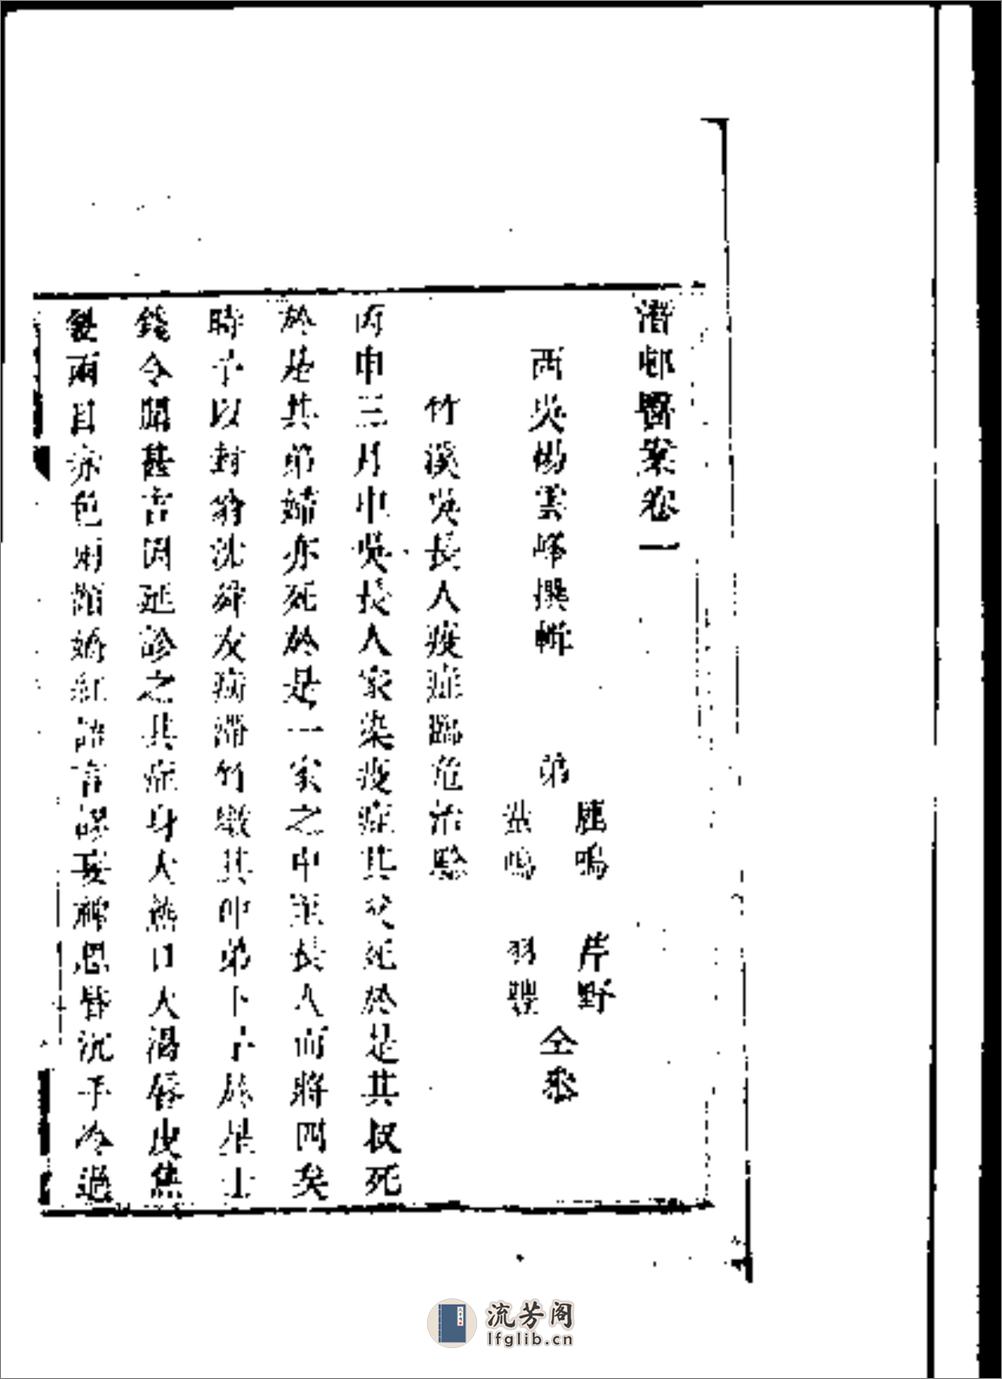 潛邨醫案卷一
西吳楊雲峰撰輯
弟
鹿鳴 芹野
盐鳴 羽
仝叅
竹溪吳長人疫症臨危治驗
丙申三月中吳長人家染疫症其父死於是其叔死
於是其弟婦亦死於是一家之中至長人而將四矣
時予以封翁沈舜友病滯竹墩其仲弟卜予於是土
錢令聞甚吉因延診之其症身大熱口大渴唇皮焦
髮兩目赤色兩顴嬌紅語言謬妄神思昏沉手冷過